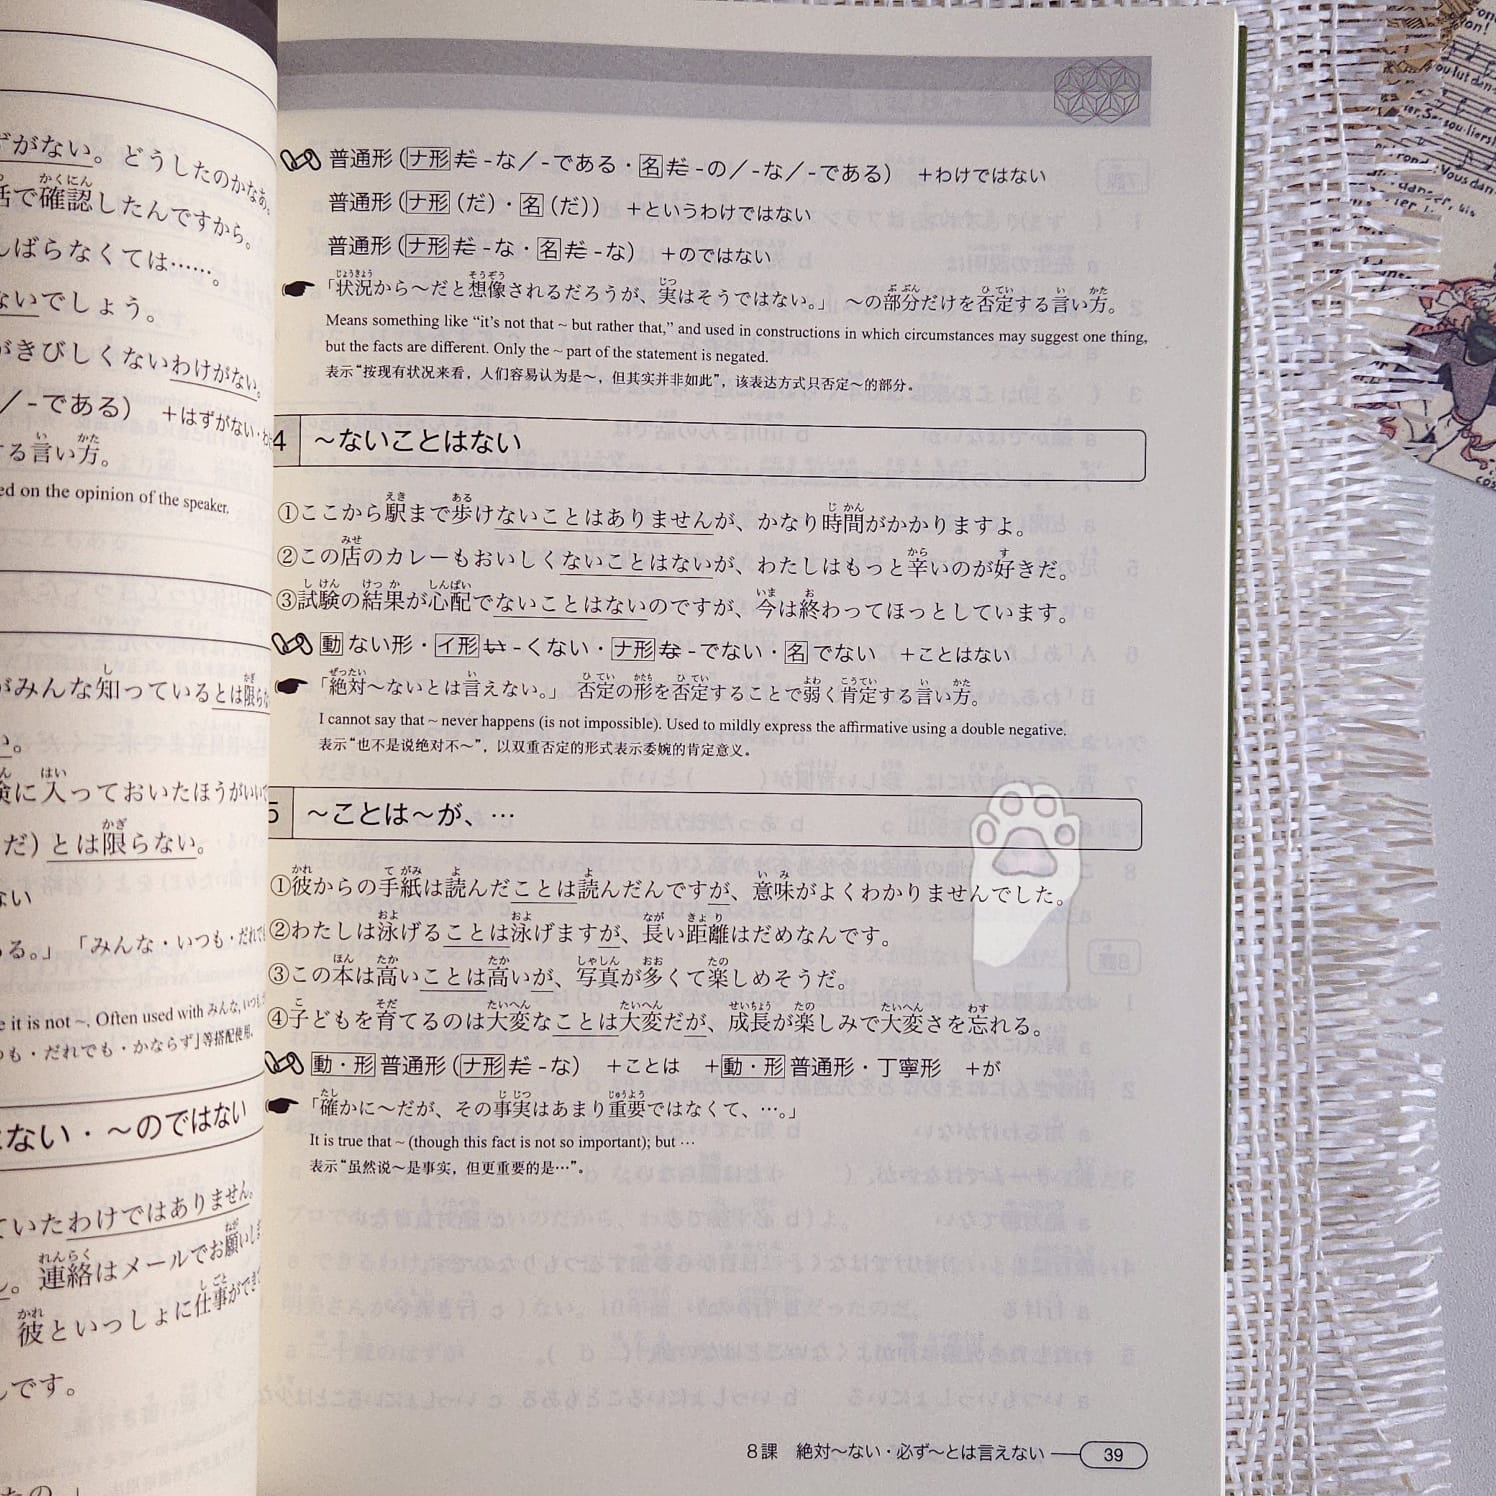 ずがない。どうしたのかなあ。
話で確認したんですから。
んばらなくては……。
ないでしょう。
がきびしくないわけがない。
／-である） ＋はずがない・わ
する言い方。
ed on the opinion of the speaker.
がみんな知っているとは限らな
い。
険に入っておいたほうがいい
だ）とは限らない。
ない
る。」「みんな・いつも・だれで
e it is not ~. Often used with みんな, いつも
つも・だれでも・かならず」等搭配使用。
はない・～のではない
ていたわけではありません。
ん。連絡はメールでお願いしま
彼といっしょに仕事ができ
んです。
たの。」
普通形（ナ形 だ -な／-である・名 だ -の／-な／-である） ＋わけではない
普通形（ナ形（だ）・名（だ）） ＋というわけではない
普通形（ナ形 だ -な・名 だ -な） ＋のではない
「状況から～だと想像されるだろうが、実はそうではない。」 ～の部分だけを否定する言い方。
Means something like “it’s not that ~ but rather that,” and used in constructions in which circumstances may suggest one thing,
but the facts are different. Only the ~ part of the statement is negated.
表示“按现有状况来看，人们容易认为是～，但其实并非如此”，该表达方式只否定～的部分。
4 ～ないことはない
①ここから駅まで歩けないことはありませんが、かなり時間がかかりますよ。
②この店のカレーもおいしくないことはないが、わたしはもっと辛いのが好きだ。
③試験の結果が心配でないことはないのですが、今は終わってほっとしています。
動 ない形・イ形 い -くない・ナ形 な -でない・名 でない ＋ことはない
「絶対～ないとは言えない。」 否定の形を否定することで弱く肯定する言い方。
I cannot say that ~ never happens (is not impossible). Used to mildly express the affirmative using a double negative.
表示“也不是说绝对不～”，以双重否定的形式表示委婉的肯定意义。
5 ～ことは～が、…
①彼からの手紙は読んだことは読んだんですが、意味がよくわかりませんでした。
②わたしは泳げることは泳げますが、長い距離はだめなんです。
③この本は高いことは高いが、写真が多くて楽しめそうだ。
④子どもを育てるのは大変なことは大変だが、成長が楽しみで大変さを忘れる。
動・形 普通形（ナ形 だ -な） ＋ことは ＋動・形 普通形・丁寧形 ＋が
「確かに～だが、その事実はあまり重要ではなくて、…。」
It is true that ~ (though this fact is not so important); but …
表示“虽然说～是事实，但更重要的是…”。
8課 絶対～ない・必ず～とは言えない 39